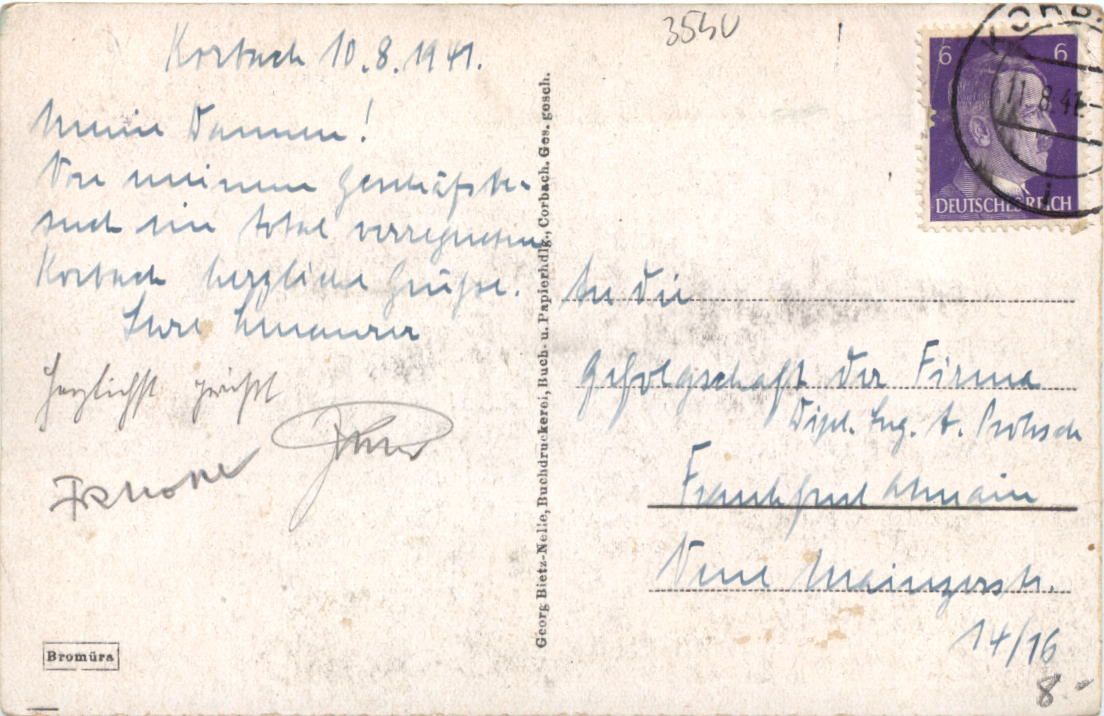 3540
Korbach 10.8.1941.
Meine Damen!
Von meinem Geschäftsbe-
such im total verregneten
Korbach herzliche Grüße.
Ihre
Herzlichst grüßt
Georg Bietz-Nelle, Buchdruckerei, Buch- u. Papierhdlg., Corbach. Ges. gesch.
Bromüra
KORB
11.8.41
6 6
DEUTSCHES REICH
An die
Gefolgschaft der Firma
Dipl. Ing. A.
Frankfurt a/Main
Neue Mainzerstr.
14/16
8.-